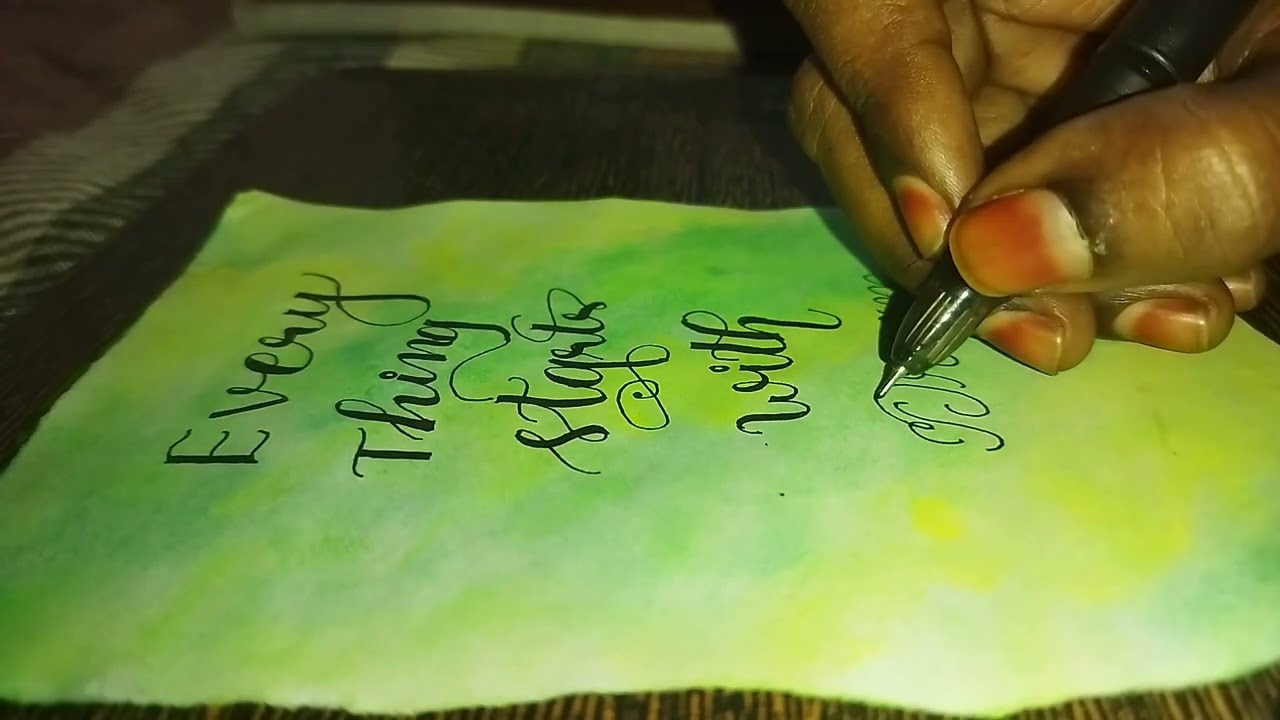 Every
Thing
starts
with